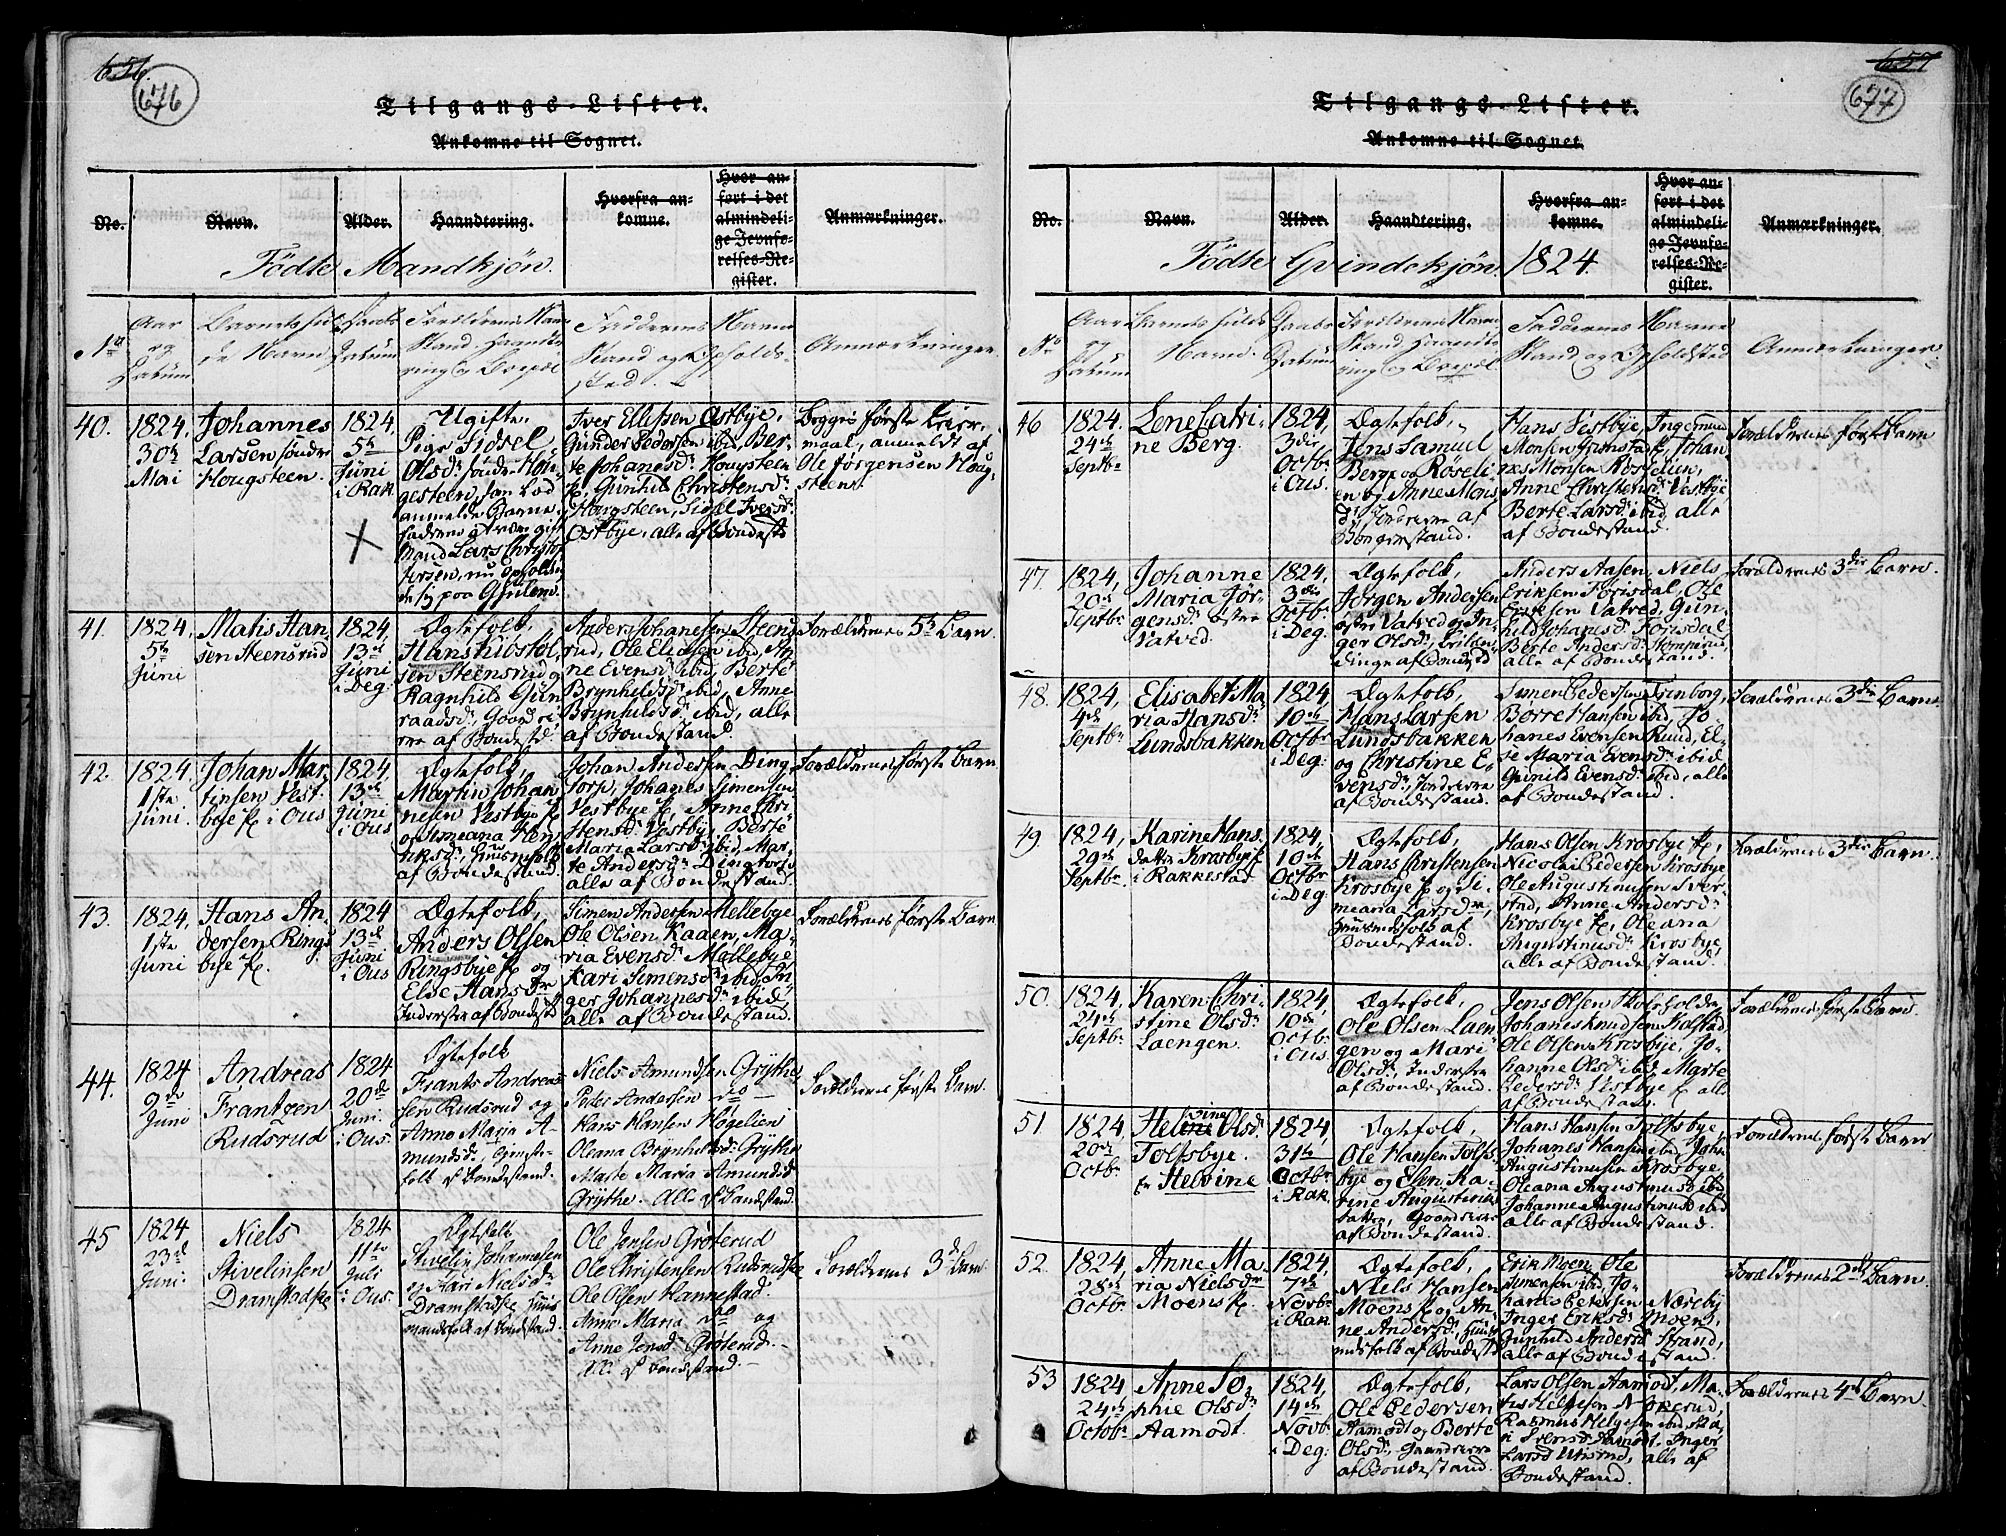 656.
676
Tilgangs-Lister.
Ankomne til Sognet.
No.
Navn.
Alder.
Haandtering.
Hvorfra an-
komne.
Hvor an-
ført i det
almindeli-
ge Jevnfø-
relses-Re-
gister.
Anmærkninger.
Födte Mandkjön.
Aar
og
Datum
Barnets ful
de Navn
Daabs
Datum
Forældrenes Navn
Stand, Haandte
ring og Bopæl
Faddernes Navne
Stand og Opholds-
sted.
Anmærkninger
40.
1824,
30te
Mai
Johannes
Larsen søndre
Hougsteen.
1824,
5te
Juni
i Rak.
Ugifte,
Pige Sidsel
Olsdr. søndre Hou-
gesteen, som Lod
anmelde Barne-
faderen at være gift
Mand Lars Christof-
fersen, nu opholden-
de sig paa
Iver Ellefsen Østbye,
Gunder Pedersen ibid, Ber-
te Johanesdr. Hougsteen
Gunhil Christensdr.
Hougsteen, Sidsel Iversdr.
Østbye, alle af Bondestd
Begges første Leier-
maal, anmeldt af
Ole Jørgensen Houg-
steen.
41.
1824,
5te
Juni
Matis Han-
sen Steensrud
1824,
13de
Juni
i Deg:
Ægtefolk,
Hans
sen Steensrud og
Ragnhild Gun-
raadsdr., Gaard ei-
ere af Bondestd.
Anders Johanesen Steens-
rud, Ole Eliasen ibid, An-
ne Evensdr. ibid, Berte
Brynhildsdr. ibid, Anne
Brynhildsdr. ibid, alle
af Bondestand.
Forældrenes 5te Barn.
42.
1824.
1ste
Juni.
Johan Mar-
tinsen Vest-
bye i Ous
1824,
13de
Juni
i Ous
Ægtefolk,
Martin Johan-
nesen Vestbye
og Simiana Hen-
riksdr., Huusmfolk
af Bondestand.
Johan Andersen Ding-
torp, Johanes Simensen
Vestbye, Anne Chri-
stensdr. Vestbye, Berte
Maria Larsdr. ibid, Mar-
te Andersdr. Dingtorp
alle af Bondestand.
Forældrenes første Barn
43.
1824,
1ste
Juni
Hans An-
dersen Rings-
bye
1824
13de
Juni
i Ous
Ægtefolk,
Anders Olsen
Ringsbye og
Else Hansdr
Inderster af Bondestd
Simen Andersen Mellebye
Ole Olsen Kaaen, Ma-
ria Evensdr. Mellebye
Kari Simensdr. ibid, In-
ger Johannesdr. ibid,
alle af Bondestand.
Forældrenes første Barn
44.
1824
9de
Juni
Andreas
Frantzen
Rudsrud
1824
20de
Juni.
i Ous.
Ægtefolk
Frants Andrea-
sen Rudsrud og
Anne Maria A-
mundsdr.,
folk af Bondestand.
Niels Amundsen Grÿthe,
Peder Andersen do
Hans Hansen Høgelien
Oleana Brÿnhildsdr. Grÿthe
Marte Maria Amundsdr
Grÿthe. Alle af Bondestand.
Forældrenes første Barn.
45
1824
23de
Juni.
Niels
Stivelinsen
Dramstad
1824
11te
Juli
i Ous.
Ægtefolk
Stivelin Johannesen
og Kari Nielsdr.
Dramstad Huus
mandsfolk af Bondestand.
Ole Jensen Grøterud
Ole Christensen Rudsrud
Ole Olsen Hannestad.
Anne Maria do og
Anne Jensdr. Grøterud.
Alle af Bondestand.
Forældrenes 3de Barn.
657
677
Tilgangs-Lister.
Ankomne til Sognet.
No.
Navn.
Alder.
Haandtering.
Hvorfra an-
komne.
Hvor an-
ført i det
almindeli-
ge Jevnfø-
relses-Re-
gister.
Anmærkninger.
Födte Qvindekjön 1824.
No
Aar
og
Datum
Barnets fulde
Navn.
Daabs
Datum
Forældrenes Navn
Stand Haandte
ring og Bopæl
Faddernes Navne
Stand og Opholdsted
Anmærkninger.
46
1824.
24de
Septbr
Lene Catri-
ne Berg.
1824,
3die
Octbr
i Ous.
Ægtefolk,
Jens Samuel
Berg og Røseli-
en og Anne Mons-
dr., Inderere af
Borgerstand.
Hans Vestbye, Ingemund
Monsen Johan-
nes Monsen Røselien,
Anne Christensdr. Vestbye
Berte Larsdr. ibid, alle
af Bondestand.
Forældrenes første Barn
47.
1824,
20de
Septbr
Johanne
Maria Jør-
gensdr. østre
Vatved.
1824,
3die
Octbr
i Deg.
Ægtefolk,
Jørgen Andersen
østre Vatved og In-
ger Olsdr.,
af Bondestd
Anders Aasen, Niels
Eriksen Forisdal, Ole
Eriksen Vatved, Gun-
hild Johansdr. Forisdal
Berte Andersdr. Stomperud,
alle af Bondestand.
Forældrenes 3die Barn.
48.
1824,
4de
Septbr
Elisabet Ma-
ria Hansdr.
Lundsbakken
1824,
10de
Octbr
i Deg:
Ægtefolk,
Hans Larsen
Lundsbakken
og Christine E-
vensdr., Inderere
af Bondestand.
Simen Pedersen Isenborg,
Børre Hansen ibid, Jo-
hanes Evensen Ruud, El-
se Maria Evensdr. ibid
Gunild Evensdr. ibid, alle
af Bondestand.
Forældrenes 3die Barn
49
1824,
29de
Septbr.
Karine Hans-
datter Krosbye
i Rakkestad
1824,
10de
Octbr
i Deg.
Ægtefolk,
Hans Christensen
Krosbye og Si-
meana Larsdr,
Huusmfolk af
Bondestand.
Hans Olsen Krosbye
Nicolai Pedersen Krosbye
Ole Augustinusen Sver-
stad, Anne Andersdr.
Krosbye, Oleana
Augustinusdr. Krosbye,
alle af Bondestand.
Forældrenes 3die Barn.
50.
1824,
24de
Septbr
Karen Chri-
stine Olsdr.
Laengen.
1824
10de
Octbr
i Ous.
Ægtefolk,
Ole Olsen Laen-
gen og Mari
Olsdr., Inderste
af Bondestand.
Jens Olsen Skoleholder
Johanes Knudsen Kolstad,
Ole Olsen Krosbye, Jo-
hanne Olsdr. ibid, Marte
Pedersdr. Vestbye alle
af Bondestand.
Forældrenes første Barn.
51
1824
20de
Octbr.
Helvine Olsdr.
Tolfsbye.
Helvine
1824,
31te
Octbr
i Rak.
Ægtefolk,
Ole Hansen Tolfs-
bye og Elen Ka-
trine Augustinus-
datter, Gaardeiere
af Bondestand.
Hans Hansen Tolfsbye,
Johanes Hansen ibid, John
Augustinusen Krosbye,
Oleana Augustinusd ibid
Johanne Augustinusd ibid
alle af Bondestand.
Forældrenes første Barn
52.
1824,
28de
Octbr
Anne Ma-
ria Nielsdr
Moens
1824,
7de
Novbr
i Rak
Ægtefolk,
Niels Hansen
Moens og An-
ne Andersdr., Huus
mdsfolk af Bondestd
Erik Moen, Ole
Simensen ibid, Jo-
hanes Petersen Næreby
Inger Eriksdr. Moens,
Gunhild Andersdr. Strand,
alle af Bondestand.
Forældrenes 2det Barn
53
1824
24de
Octobr
Anne So-
phie Olsdr.
Aamodt.
1824,
14de
Novbr.
i Deg:
Ægtefolk,
Ole Pedersen
Aamodt og Berte
Olsdr., Gaardeiere
af Bondestand.
Lars Olsen Aamodt, Ma-
tis Helgesen Nøkerud,
Rasmus Helgesen ibid,
Svensdr. Aamodt, Inger
Larsd alle af
Bondestand.
Forældrenes 4de Barn.